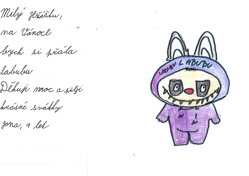 Milý Ježíšku,
na Vánoce
bych si přála
labubu
Děkuji moc a přeji
krásné svátky
Jana, 9 let
LABUBU